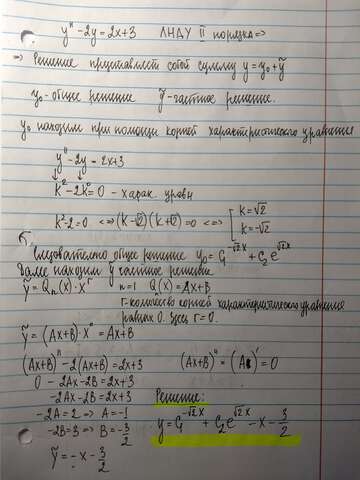 y'' - 2y = 2x+3 ЛНДУ II порядка =>
=> Решение представляет собой сумму y = y₀ + ỹ
y₀ - общее решение ỹ - частное решение.
y₀ находим при помощи корней характеристического уравнения
y'' - 2y = 2x+3
k² - 2k⁰ = 0 - харак. уравн
k² - 2 = 0 <=> (k-√2)(k+√2) = 0 <=> [ k = √2
k = -√2
Следовательно общее решение y₀ = C₁^{-√2x} + C₂e^{√2x}
Далее находим ỹ частное решение
ỹ = Qₙ(x)·xʳ n=1 Q(x) = Ax+B
r - количество корней характеристического уравнения
равных 0. Здесь r=0.
ỹ = (Ax+B)·x⁰ = Ax+B
(Ax+B)'' - 2(Ax+B) = 2x+3 (Ax+B)'' = (A)' = 0
0 - 2Ax - 2B = 2x+3
-2Ax - 2B = 2x+3
-2A = 2 => A = -1
-2B = 3 => B = -3/2
ỹ = -x - 3/2
Решение:
y = C₁^{-√2x} + C₂e^{√2x} - x - 3/2